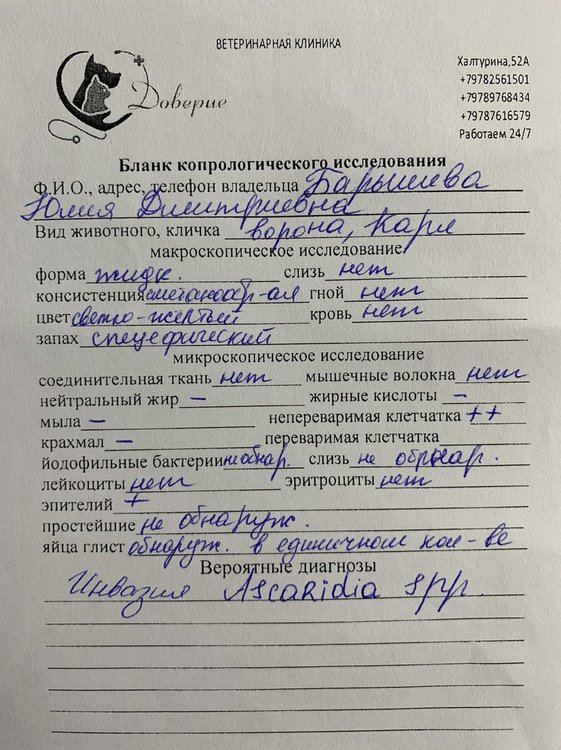 ВЕТЕРИНАРНАЯ КЛИНИКА
Доверие
Халтурина,52А
+79782561501
+79789768434
+79787616579
Работаем 24/7
Бланк копрологического исследования
Ф.И.О., адрес, телефон владельца Барышева
Юлия Димитриевна
Вид животного, кличка ворона, Карл
макроскопическое исследование
форма жидк. слизь нет
консистенция сметанообр-ая гной нет
цвет светло-желтый кровь нет
запах спецефический
микроскопическое исследование
соединительная ткань нет мышечные волокна нет
нейтральный жир – жирные кислоты –
мыла – непереваримая клетчатка ++
крахмал – переваримая клетчатка
йодофильные бактерии не обнар. слизь не обнар.
лейкоциты нет эритроциты нет
эпителий +
простейшие не обнаруж.
яйца глист обнаруж. в единичном кол-ве
Вероятные диагнозы
Инвазия Ascaridia spp.